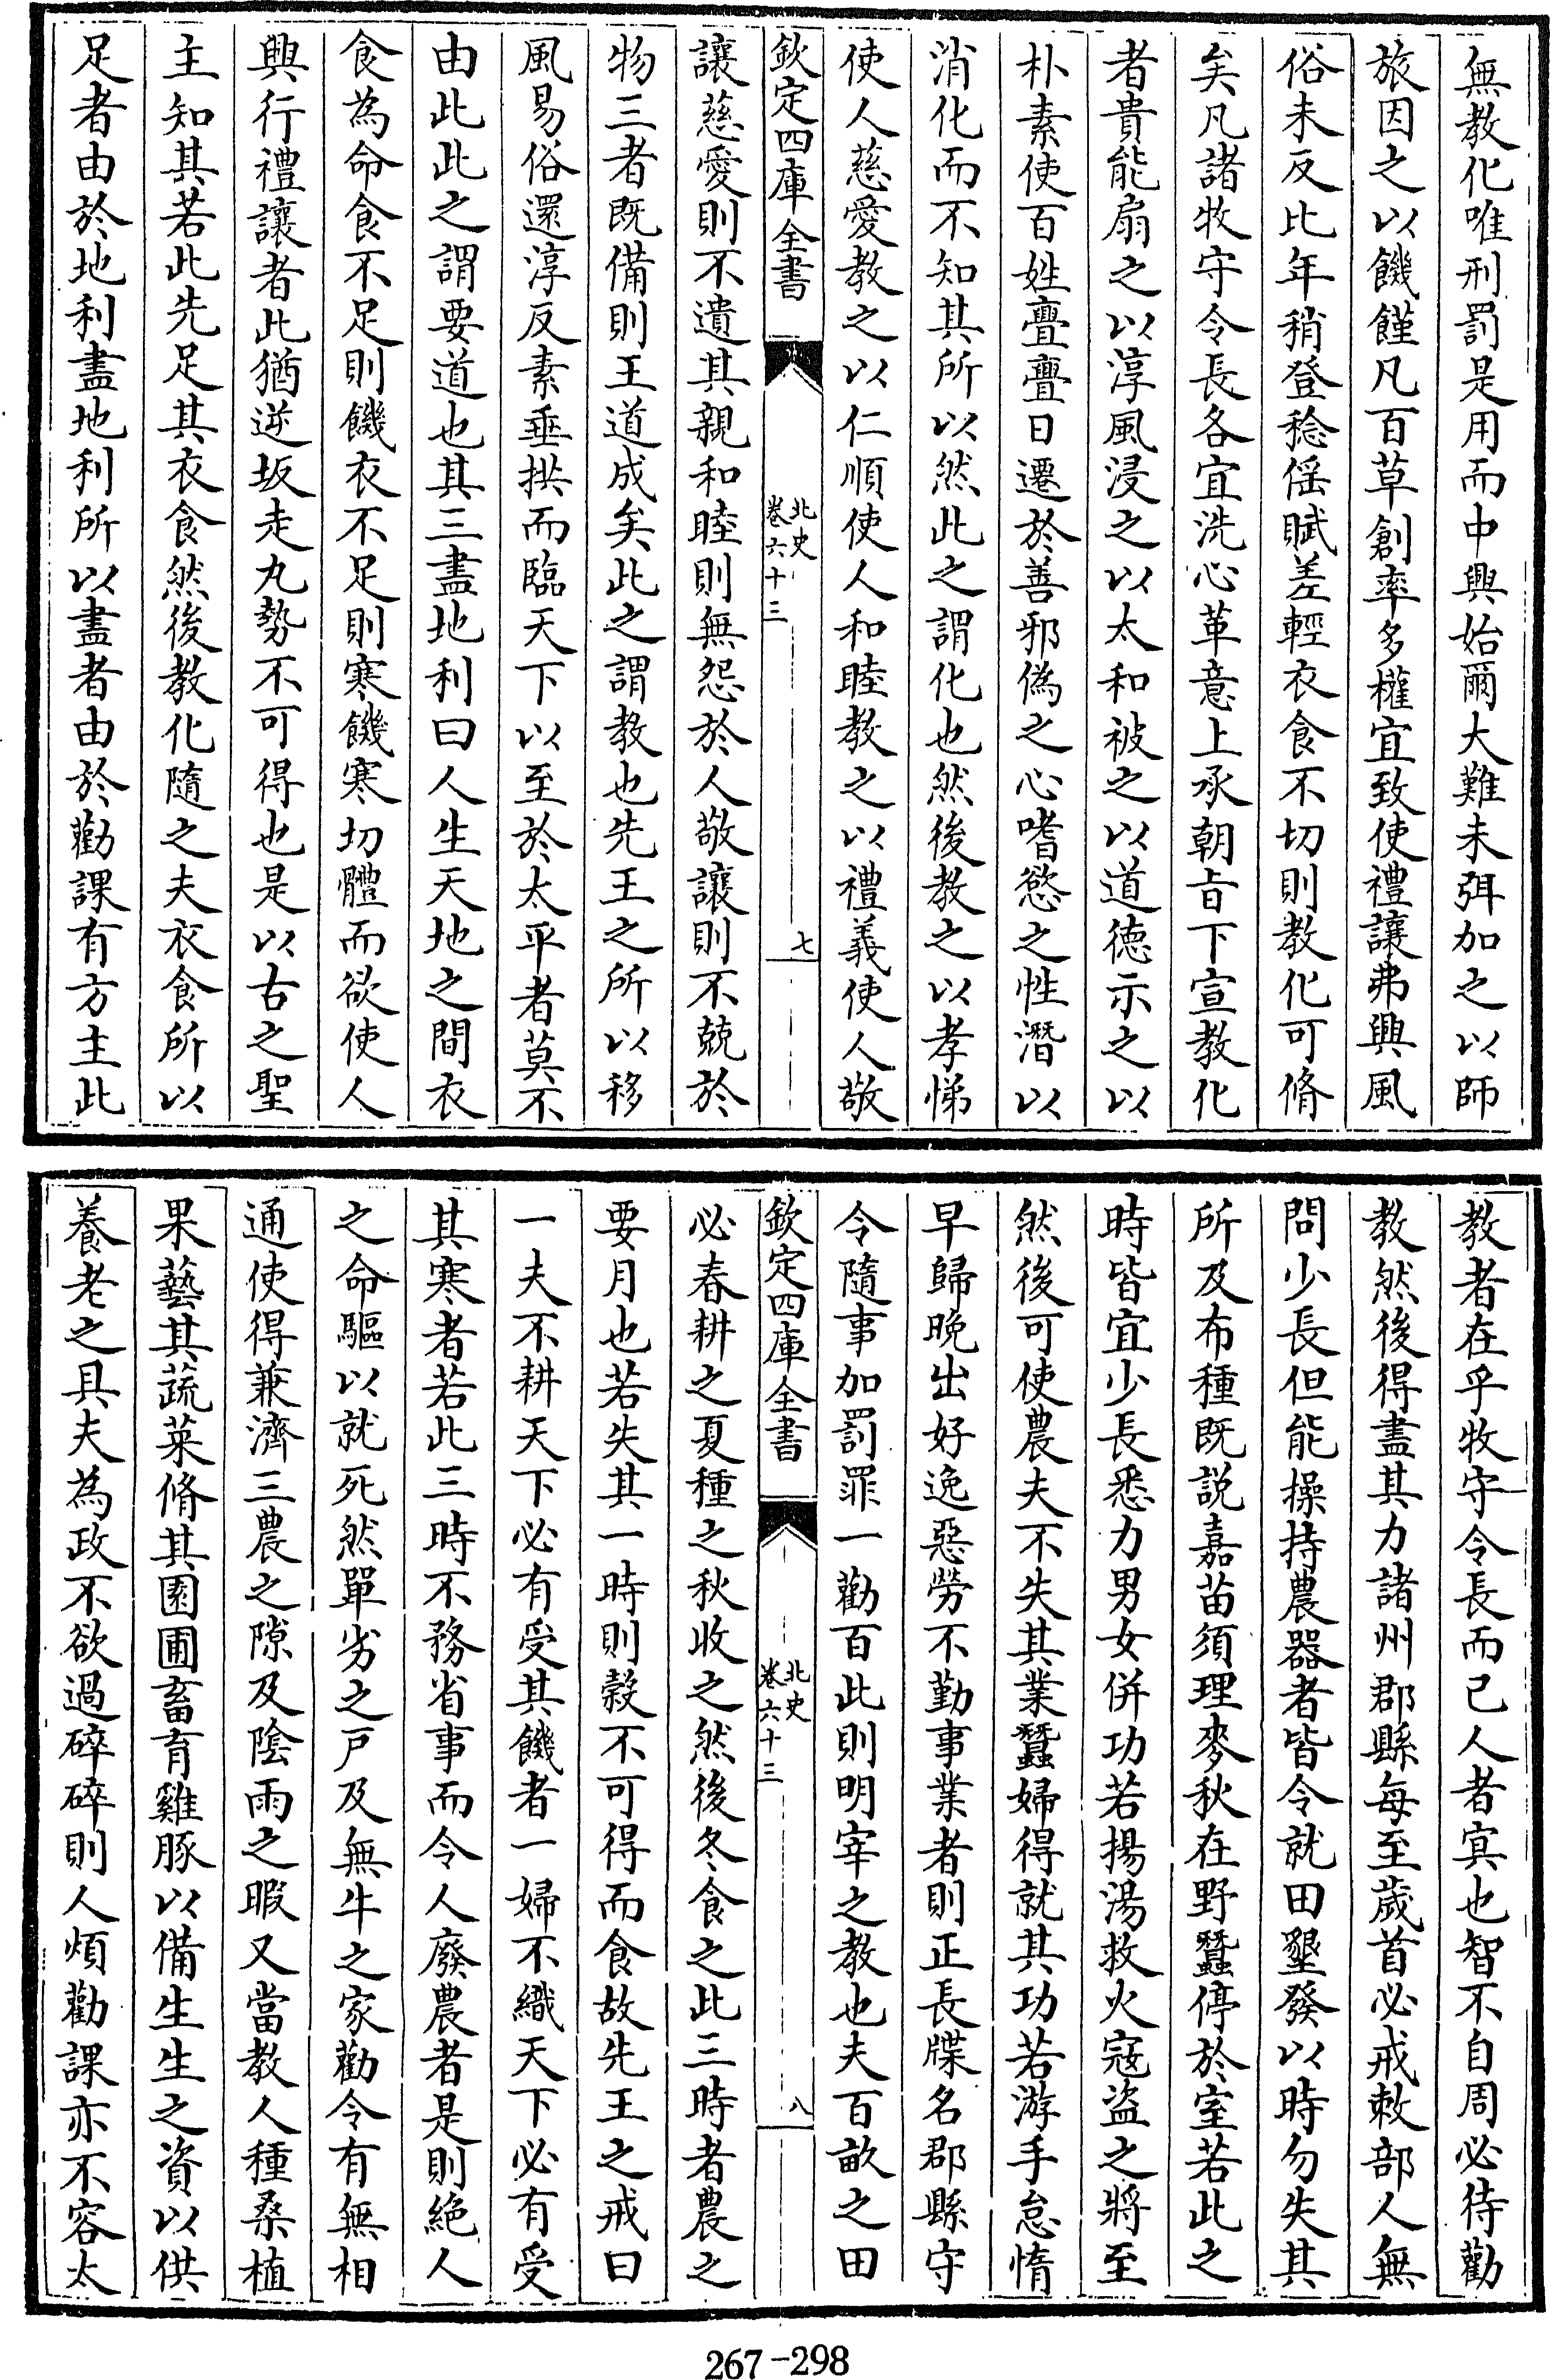 無教化唯刑罰是用而中興始爾大難未弭加之以師
旅因之以饑饉凡百草創率多權宜致使禮讓弗興風
俗未反比年稍登稔徭賦差輕衣食不切則教化可脩
矣凡諸牧守令長各宜洗心革意上承朝旨下宣教化
者貴能扇之以淳風浸之以太和被之以道徳示之以
朴素使百姓亹亹日遷於善邪偽之心嗜慾之性潛以
消化而不知其所以然此之謂化也然後教之以孝悌
使人慈愛教之以仁順使人和睦教之以禮義使人敬
欽定四庫全書
北史
卷六十三
七
讓慈愛則不遺其親和睦則無怨於人敬讓則不兢於
物三者既備則王道成矣此之謂教也先王之所以移
風易俗還淳反素垂拱而臨天下以至於太平者莫不
由此此之謂要道也其三盡地利曰人生天地之間衣
食為命食不足則饑衣不足則寒饑寒切體而欲使人
興行禮讓者此猶逆坂走丸勢不可得也是以古之聖
主知其若此先足其衣食然後教化隨之夫衣食所以
足者由於地利盡地利所以盡者由於勸課有方主此
教者在乎牧守令長而已人者冥也智不自周必待勸
教然後得盡其力諸州郡縣每至歲首必戒敕部人無
問少長但能操持農器者皆令就田墾發以時勿失其
所及布種既說嘉苗須理麥秋在野蠶停於室若此之
時皆宜少長悉力男女併功若揚湯救火寇盜之將至
然後可使農夫不失其業蠶婦得就其功若游手怠惰
早歸晚出好逸惡勞不勤事業者則正長牒名郡縣守
令隨事加罰罪一勸百此則明宰之教也夫百畝之田
欽定四庫全書
北史
卷六十三
八
必春耕之夏種之秋收之然後冬食之此三時者農之
要月也若失其一時則穀不可得而食故先王之戒曰
一夫不耕天下必有受其饑者一婦不織天下必有受
其寒者若此三時不務省事而令人廢農者是則絶人
之命驅以就死然單劣之戶及無牛之家勸令有無相
通使得兼濟三農之隙及陰雨之暇又當教人種桑植
果藝其蔬菜脩其園圃畜育雞豚以備生生之資以供
養老之具夫為政不欲過碎碎則人煩勸課亦不容太
267-298